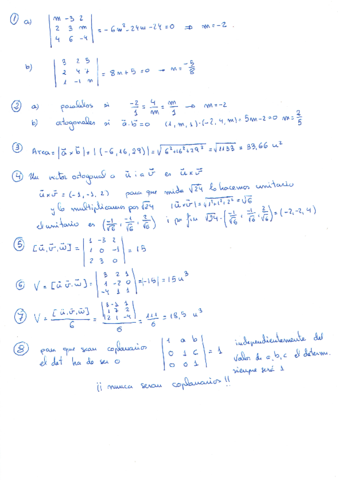 ① a) | m -3 2 |
| 2 3 m | = -6m² -24m -24 = 0 ⇒ m = -2
| 4 6 -4 |
b) | 3 2 5 |
| 2 4 7 | = 8n + 5 = 0 → n = -5/8
| 1 -1 n |
② a) paralelos si -2/1 = 4/m = m/1 → m = -2
b) ortogonales si a⃗·b⃗ = 0 (1, m, 1)·(-2, 4, m) = 5m - 2 = 0 m = 2/5
③ Area = |a⃗ x b⃗| = |(-6, 16, 29)| = √6²+16²+29² = √1133 = 33,66 u²
④ Un vector ortogonal a u⃗ i a v⃗ es u⃗ x v⃗
u⃗ x v⃗ = (-1, -1, 2) para que mida √24 lo hacemos unitario
y lo multiplicamos por √24 |u⃗ x v⃗| = √1²+1²+2² = √6
el unitario es (-1/√6, -1/√6, 2/√6) i por fin √24 · (-1/√6, -1/√6, 2/√6) = (-2, -2, 4)
⑤ [u⃗, v⃗, w⃗] = | 1 -3 2 |
| 1 0 -1 | = 15
| 2 3 0 |
⑥ V = [u⃗, v⃗, w⃗] = | 3 7 1 |
| 1 -2 0 | = |-15| = 15 u³
| -4 1 1 |
⑦ V = [u⃗, v⃗, w⃗] / 6 = / 6 = 111 / 6 = 18,5 u³
⑧ para que sean coplanarios
el det ha de ser 0
| 1 a b |
| 0 1 c | = 1
| 0 0 1 |
independientemente del
valor de a, b, c el determ.
siempre será 1
¡¡ nunca seran coplanarios !!